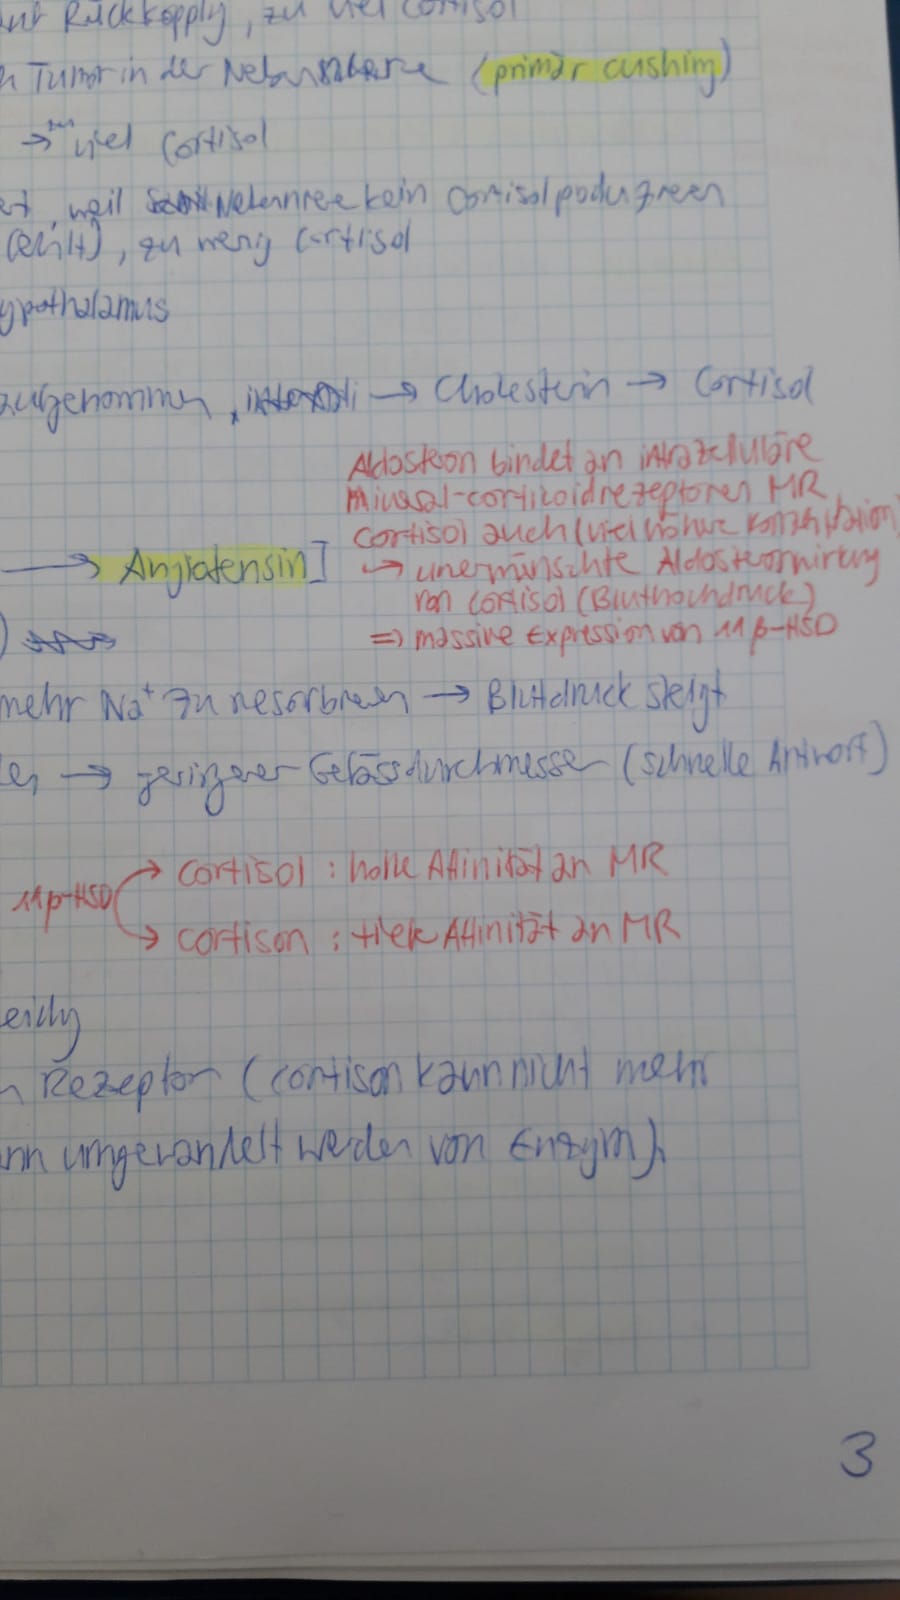 auf Rückkopply, zu viel Cortisol
n Tumor in der Nebennierenrinde (primär cushing)
→ zu viel Cortisol
weil Nebenniere kein Cortisol produzieren
, zu wenig Cortisol
ypothalamus
aufgenommen, → Cholesterin → Cortisol
Aldosteron bindet an intrazelluläre
Mineral-corticoidrezeptoren MR
Cortisol auch (viel höhere Konzentration)
→ Angiotensin I
↪ unerwünschte Aldosteronwirkung
von Cortisol (Bluthochdruck)
⇒ massive Expression von 11β-HSD
mehr Na⁺ zu resorbieren → Blutdruck steigt
→ geringerer Gefässdurchmesser (schnelle Antwort)
11β-HSD
→ Cortisol : hohe Affinität an MR
→ Cortison : tiefe Affinität an MR
Rezeptor (Cortison kann nicht mehr
umgewandelt werden von Enzym).
3